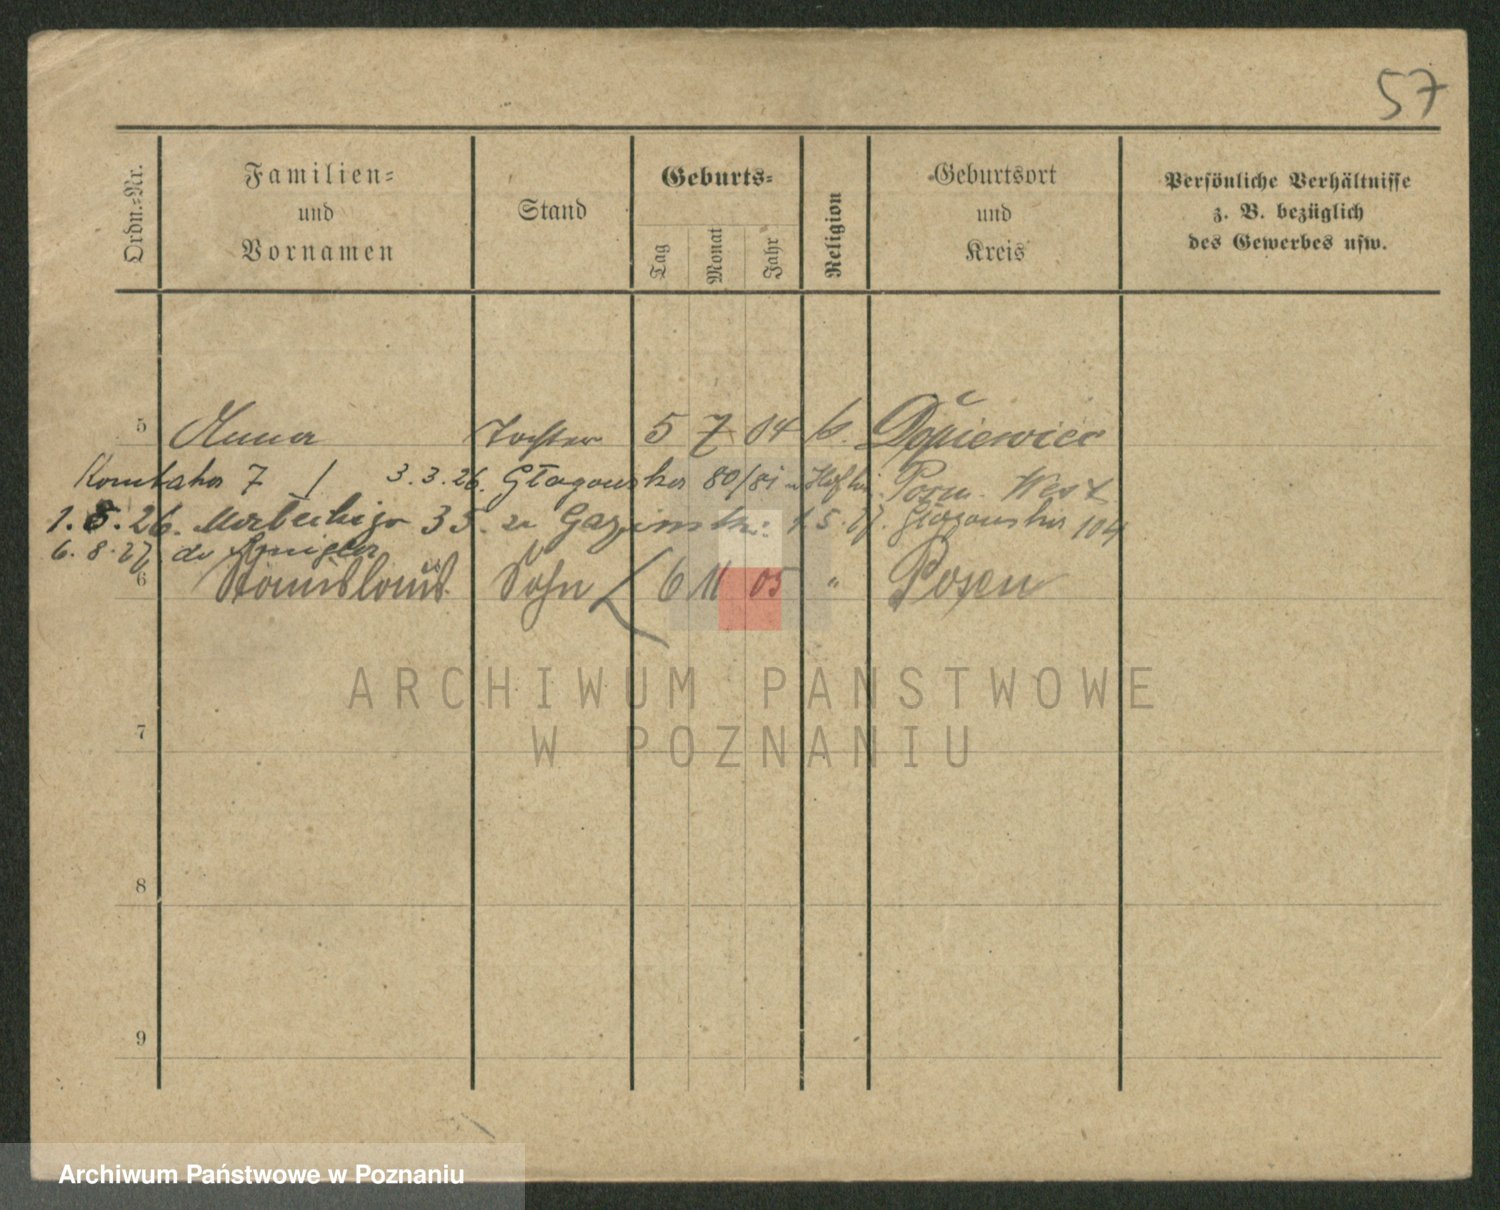 57
Ordn.-Nr.
Familien-
und
Vornamen
Stand
Geburts-
Tag
Monat
Jahr
Religion
Geburtsort
und
Kreis
Persönliche Verhältnisse
z. B. bezüglich
des Gewerbes usw.
5 Anna Tochter 5 7 04 k. Dopiewiec
7 3. 3. 26. Głogowska 80/81 Posen West
1. 5. 26. 35. 1. 5. 27. Głogowska 104
6. 8. 27. do Śmigla
6 Stanislaus Sohn 6 11 05 " Posen
ARCHIWUM PAŃSTWOWE
W POZNANIU
7
8
9
Archiwum Państwowe w Poznaniu